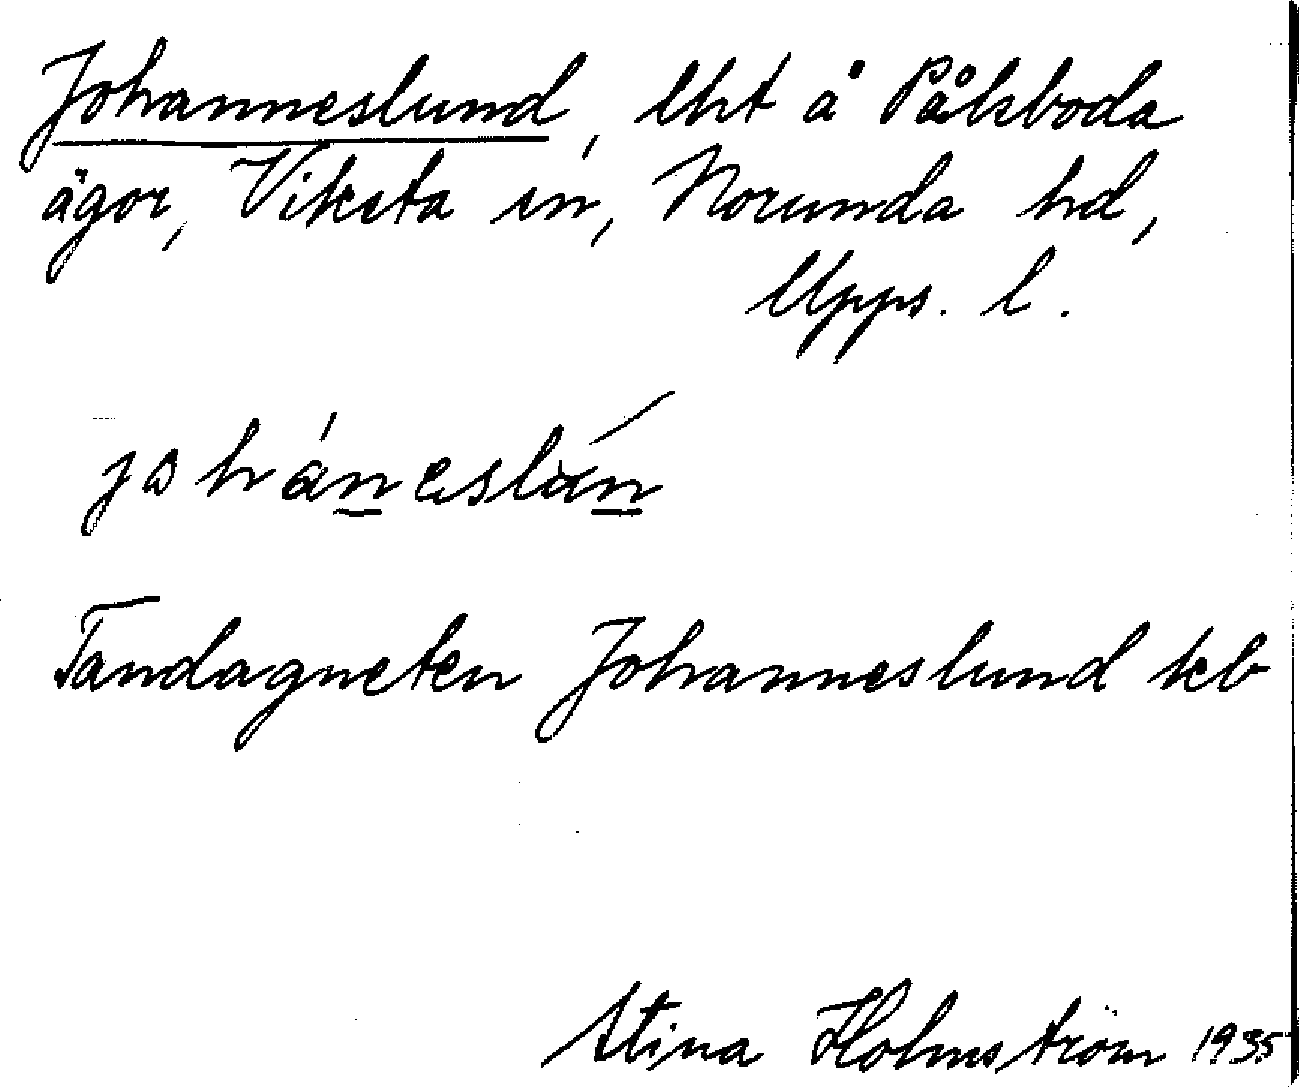 Johanneslund, lht å Pålsboda
ägor, Viksta sn, Norunda hd,
Upps. l.
joháneslún
Tandagneten Johanneslund kb
Stina Holmström 1935